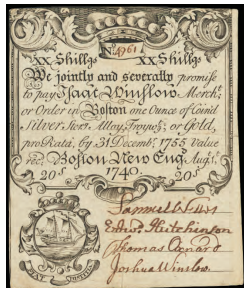 No 4761
XX Shillgs XX Shillgs
We jointly and severally promise
to pay Isaac Winslow Mercht.
or Order in Boston one Ounce of Coin'd
Silver, Alloy, Troywt; or Gold,
pro Rata, by 31 Decembr. 1755 Value
recd. Boston New Eng. Augt. 1,
20s 1740 20s
Samuel
Edwd. Hutchinson
Thomas Oxnard
Joshua Winslow.